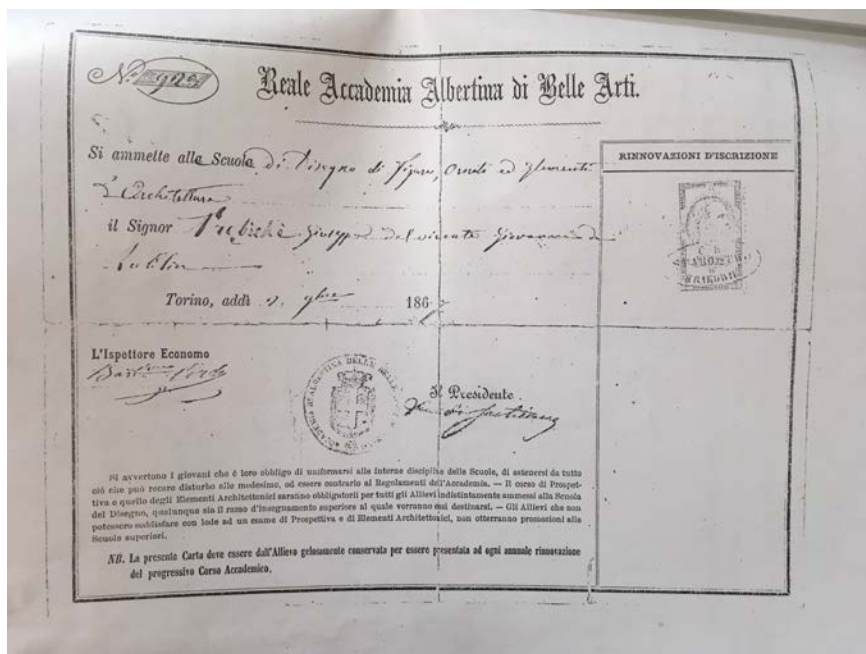 N.º 902
Reale Accademia Albertina di Belle Arti.
Si ammette alla Scuola di Disegno di Figura, Ornato ed Elementi
d'Architettura
il Signor Giuseppe del vivente Giovanni di
Lublin
Torino, addì 9bre 186
RINNOVAZIONI D'ISCRIZIONE
L'Ispettore Economo
Il Presidente
Si avvertono i giovani che è loro obbligo di uniformarsi alle interne discipline delle Scuole, di astenersi da tutto
ciò che può recare disturbo alle medesime, od essere contrario ai Regolamenti dell'Accademia. — Il corso di Prospet-
tiva e quello degli Elementi Architettonici saranno obbligatorii per tutti gli Allievi indistintamente ammessi alla Scuola
del Disegno, qualunque sia il ramo d'insegnamento superiore al quale vorranno essi destinarsi. — Gli Allievi che non
potessero soddisfare con lode ad un esame di Prospettiva e di Elementi Architettonici, non otterranno promozioni alle
Scuole superiori.
NB. La presente Carta deve essere dall'Allievo gelosamente conservata per essere presentata ad ogni annuale rinnovazione
del progressivo Corso Accademico.